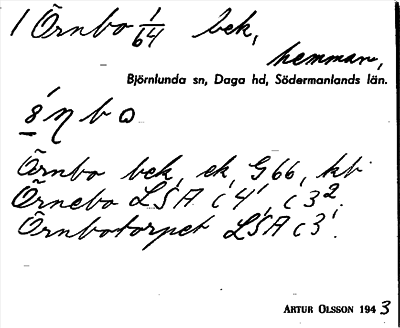 1 Örnbo 1/64 bek,
hemman,
Björnlunda sn, Daga hd, Södermanlands län.
Örnbo bek, ek, G66, kb
Örnebo LSA c4', c3².
Örnbotorpet LSA c3'.
ARTUR OLSSON 1943